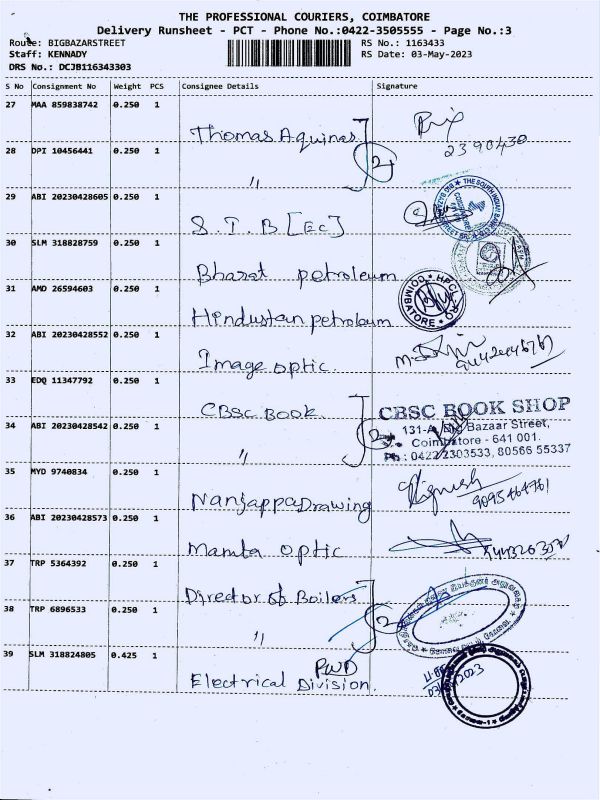 THE PROFESSIONAL COURIERS, COIMBATORE
Delivery Runsheet - PCT - Phone No.:0422-3505555 - Page No.:3
Route: BIGBAZARSTREET RS No.: 1163433
Staff: KENNADY RS Date: 03-May-2023
DRS No.: DCJB116343303
S No Consignment No Weight PCS Consignee Details Signature
27 MAA 859838742 0.250 1
Thomas Aquinas
2390430
28 DPI 10456441 0.250 1
2
"
29 ABI 20230428605 0.250 1
THE SOUTH INDIAN BANK
S I B [Ec]
30 SLM 318828759 0.250 1
Bharat petroleum
31 AMD 26594603 0.250 1
HPCL RO COIMBATORE
Hindustan petroleum
32 ABI 20230428552 0.250 1
Image optic.
33 EDQ 11347792 0.250 1
CBSC BOOK
CBSC BOOK SHOP
34 ABI 20230428542 0.250 1
131-A, Big Bazaar Street,
2
Coimbatore - 641 001.
Ph : 0422 2303533, 80566 55337
"
35 MYD 9740834 0.250 1
Nanjappa Drawing
36 ABI 20230428573 0.250 1
Mamta optic
37 TRP 5364392 0.250 1
Director of Boilers
38 TRP 6896533 0.250 1
2
"
39 SLM 318824805 0.425 1
PWD
Electrical Division.